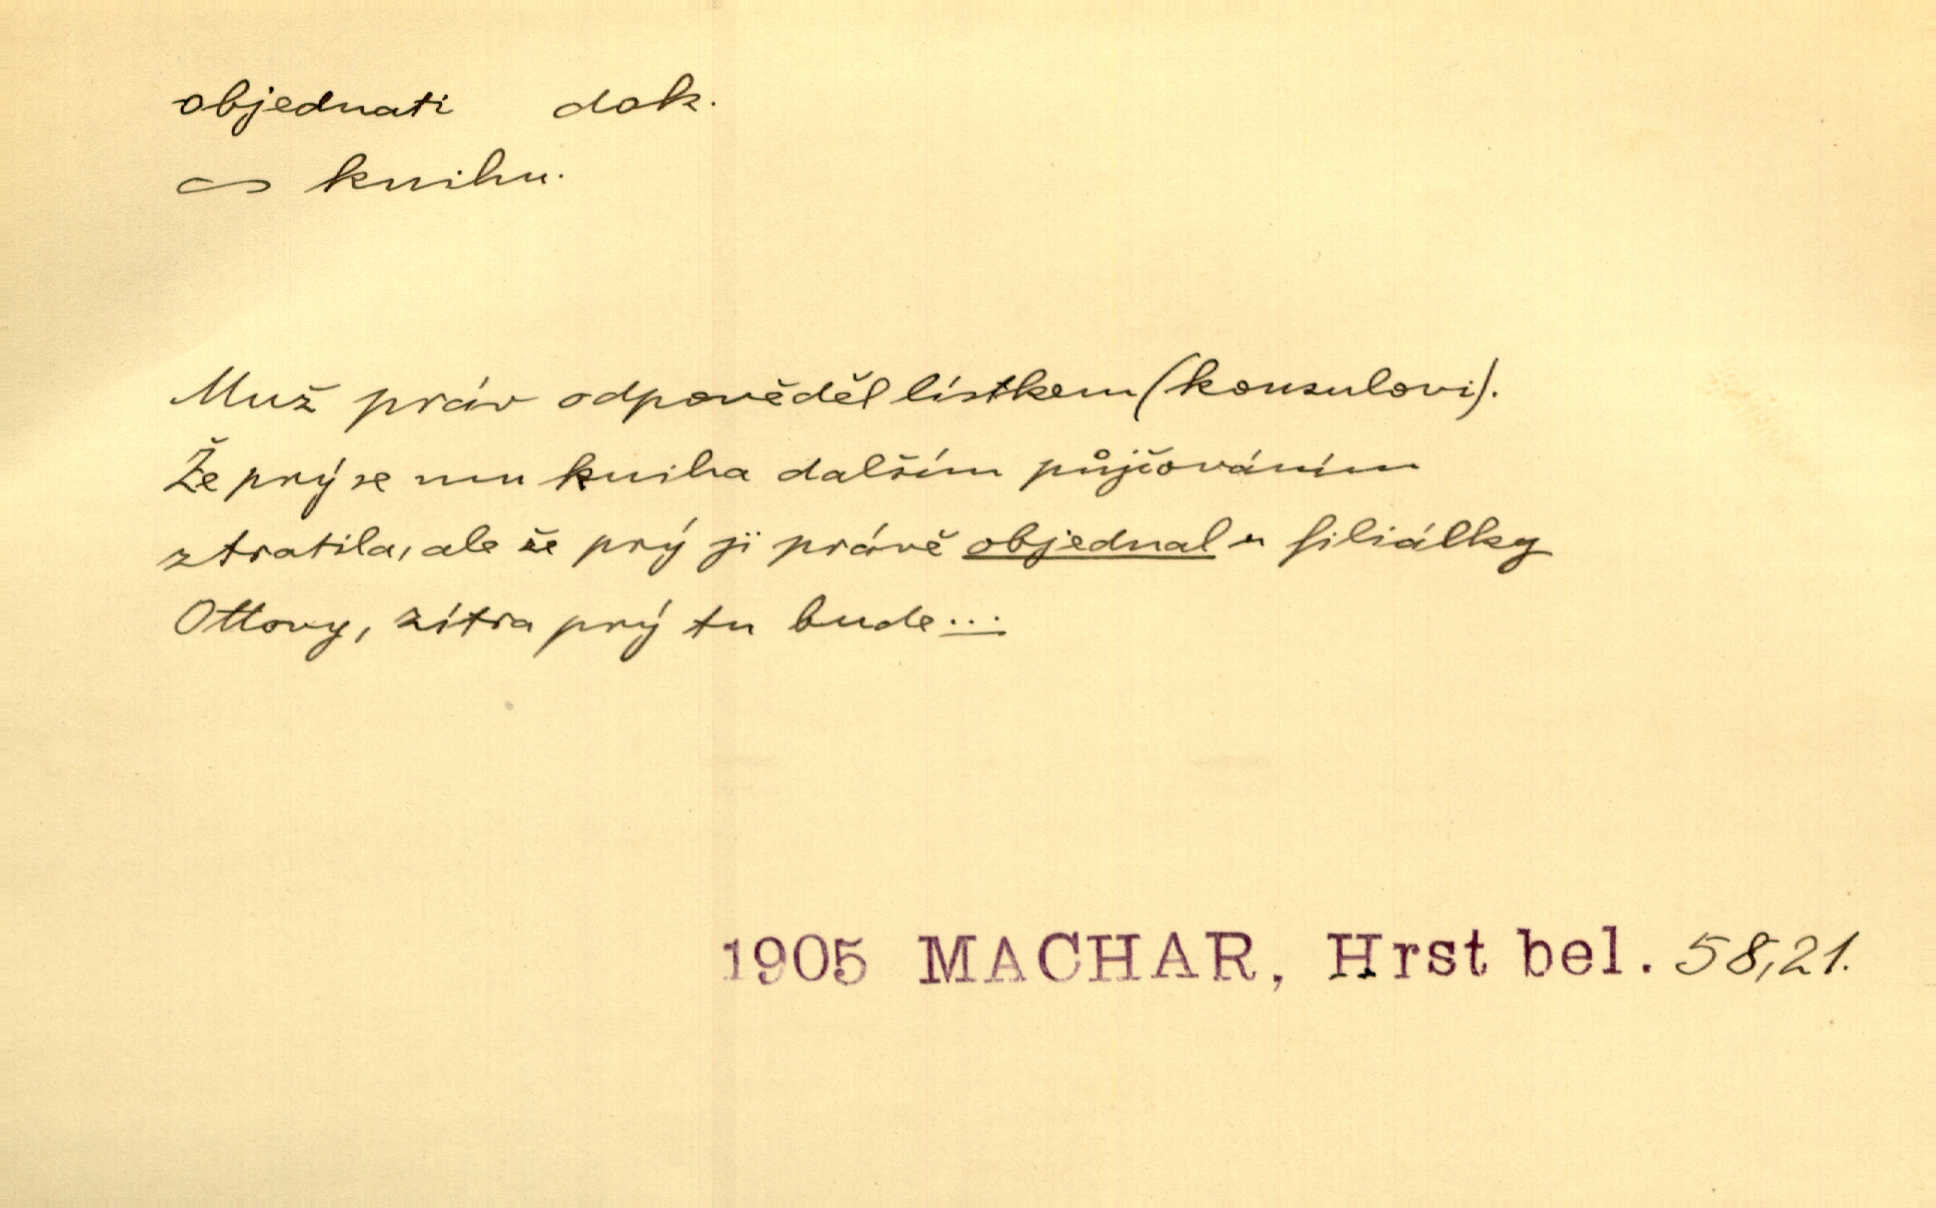 objednati dok.
∽ knihu.
Muž práv odpověděl lístkem (konsulovi).
Že prý se mu kniha dalším půjčováním
ztratila, ale že prý ji právě objednal u filiálky
Ottovy, zítra prý tu bude...
1905 MACHAR, Hrst bel. 58,21.